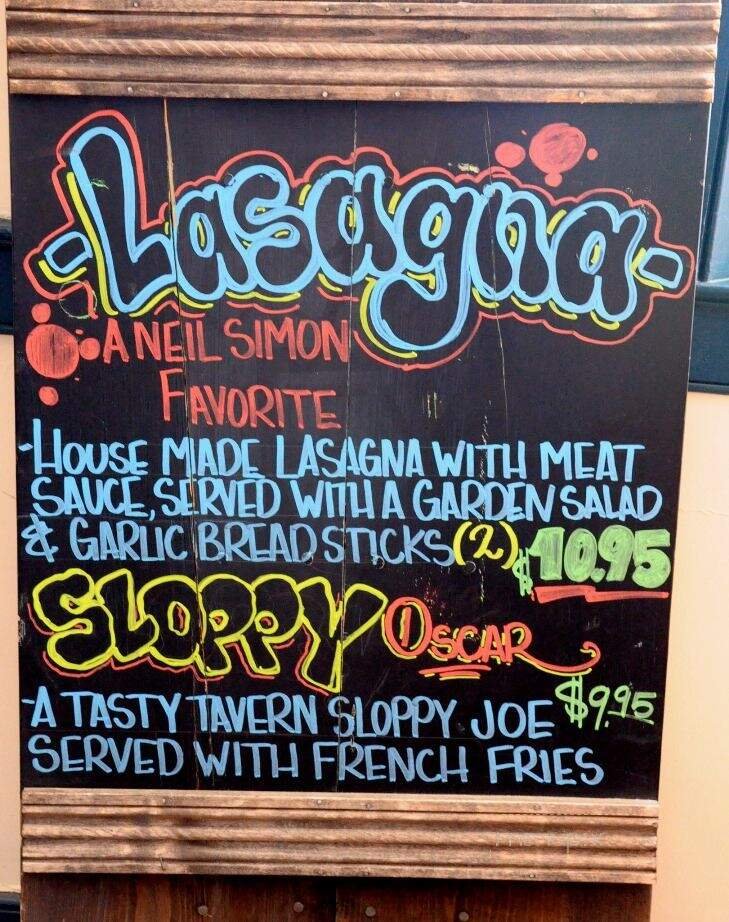 -Lasagna-
A NEIL SIMON
FAVORITE
-HOUSE MADE LASAGNA WITH MEAT
SAUCE, SERVED WITH A GARDEN SALAD
& GARLIC BREAD STICKS (2) $10.95
SLOPPY OSCAR
-A TASTY TAVERN SLOPPY JOE $9.95
SERVED WITH FRENCH FRIES